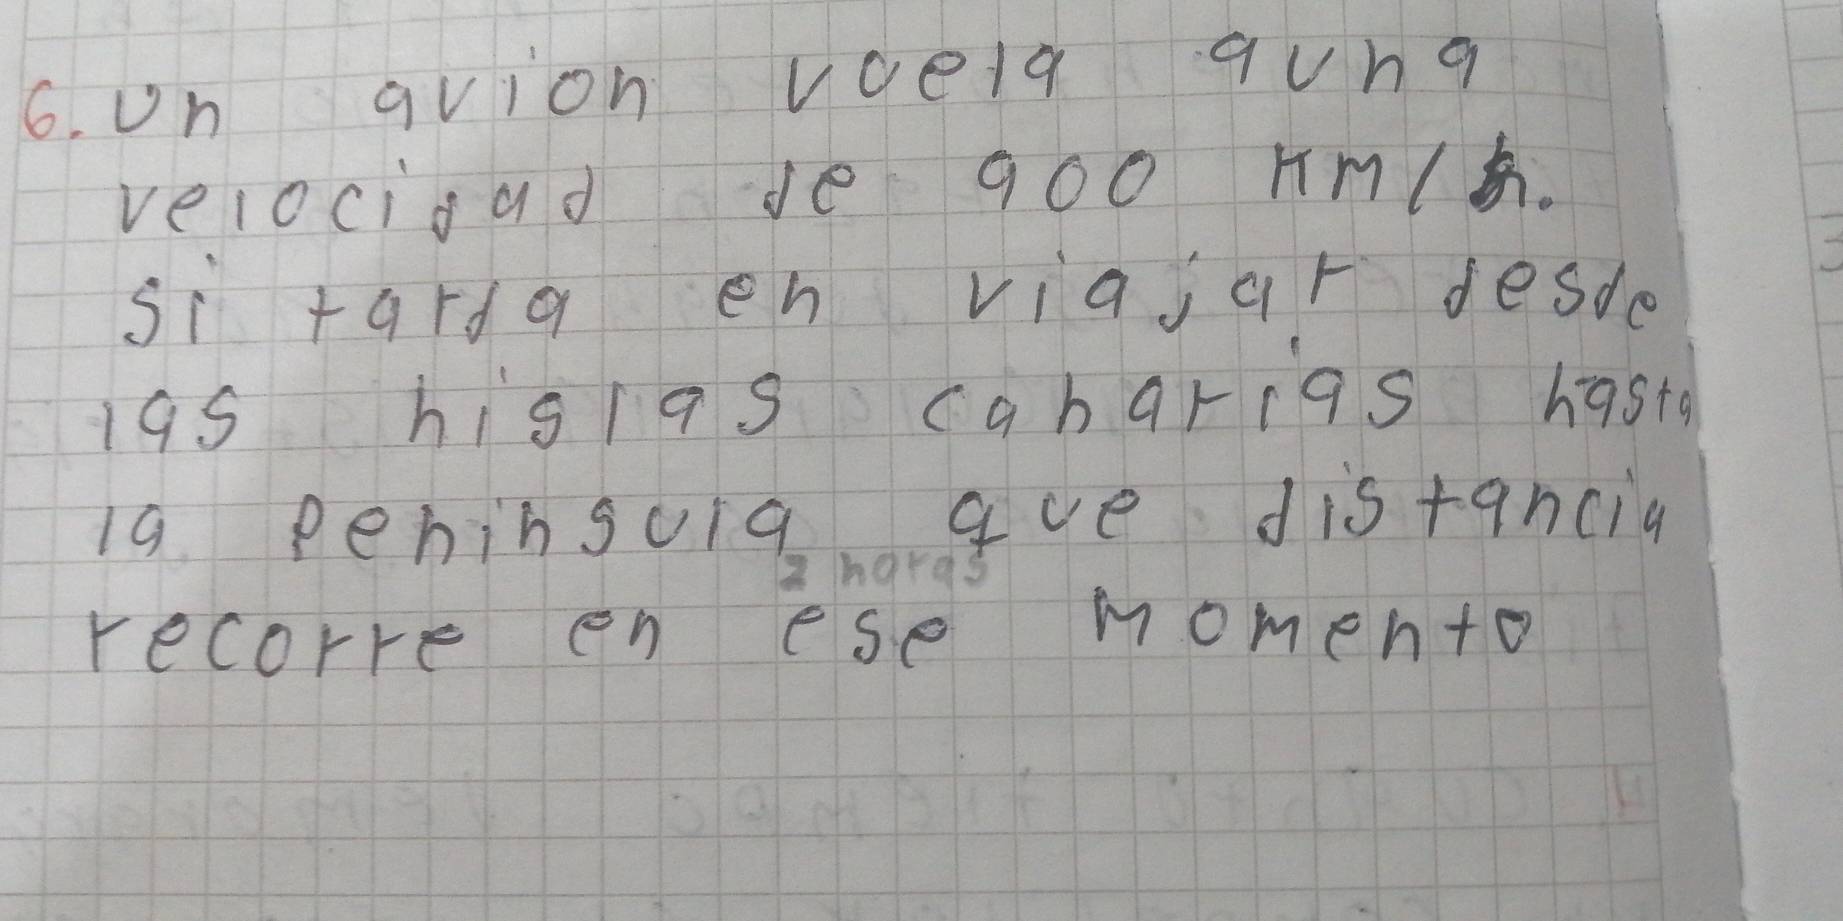 6. Un avion voela auna
velocidad de 900 Km/h.
Si tarda en viajar desde
las hislas canarias hasta
la Peninsula que distancia
2 horas
recorre en ese momento